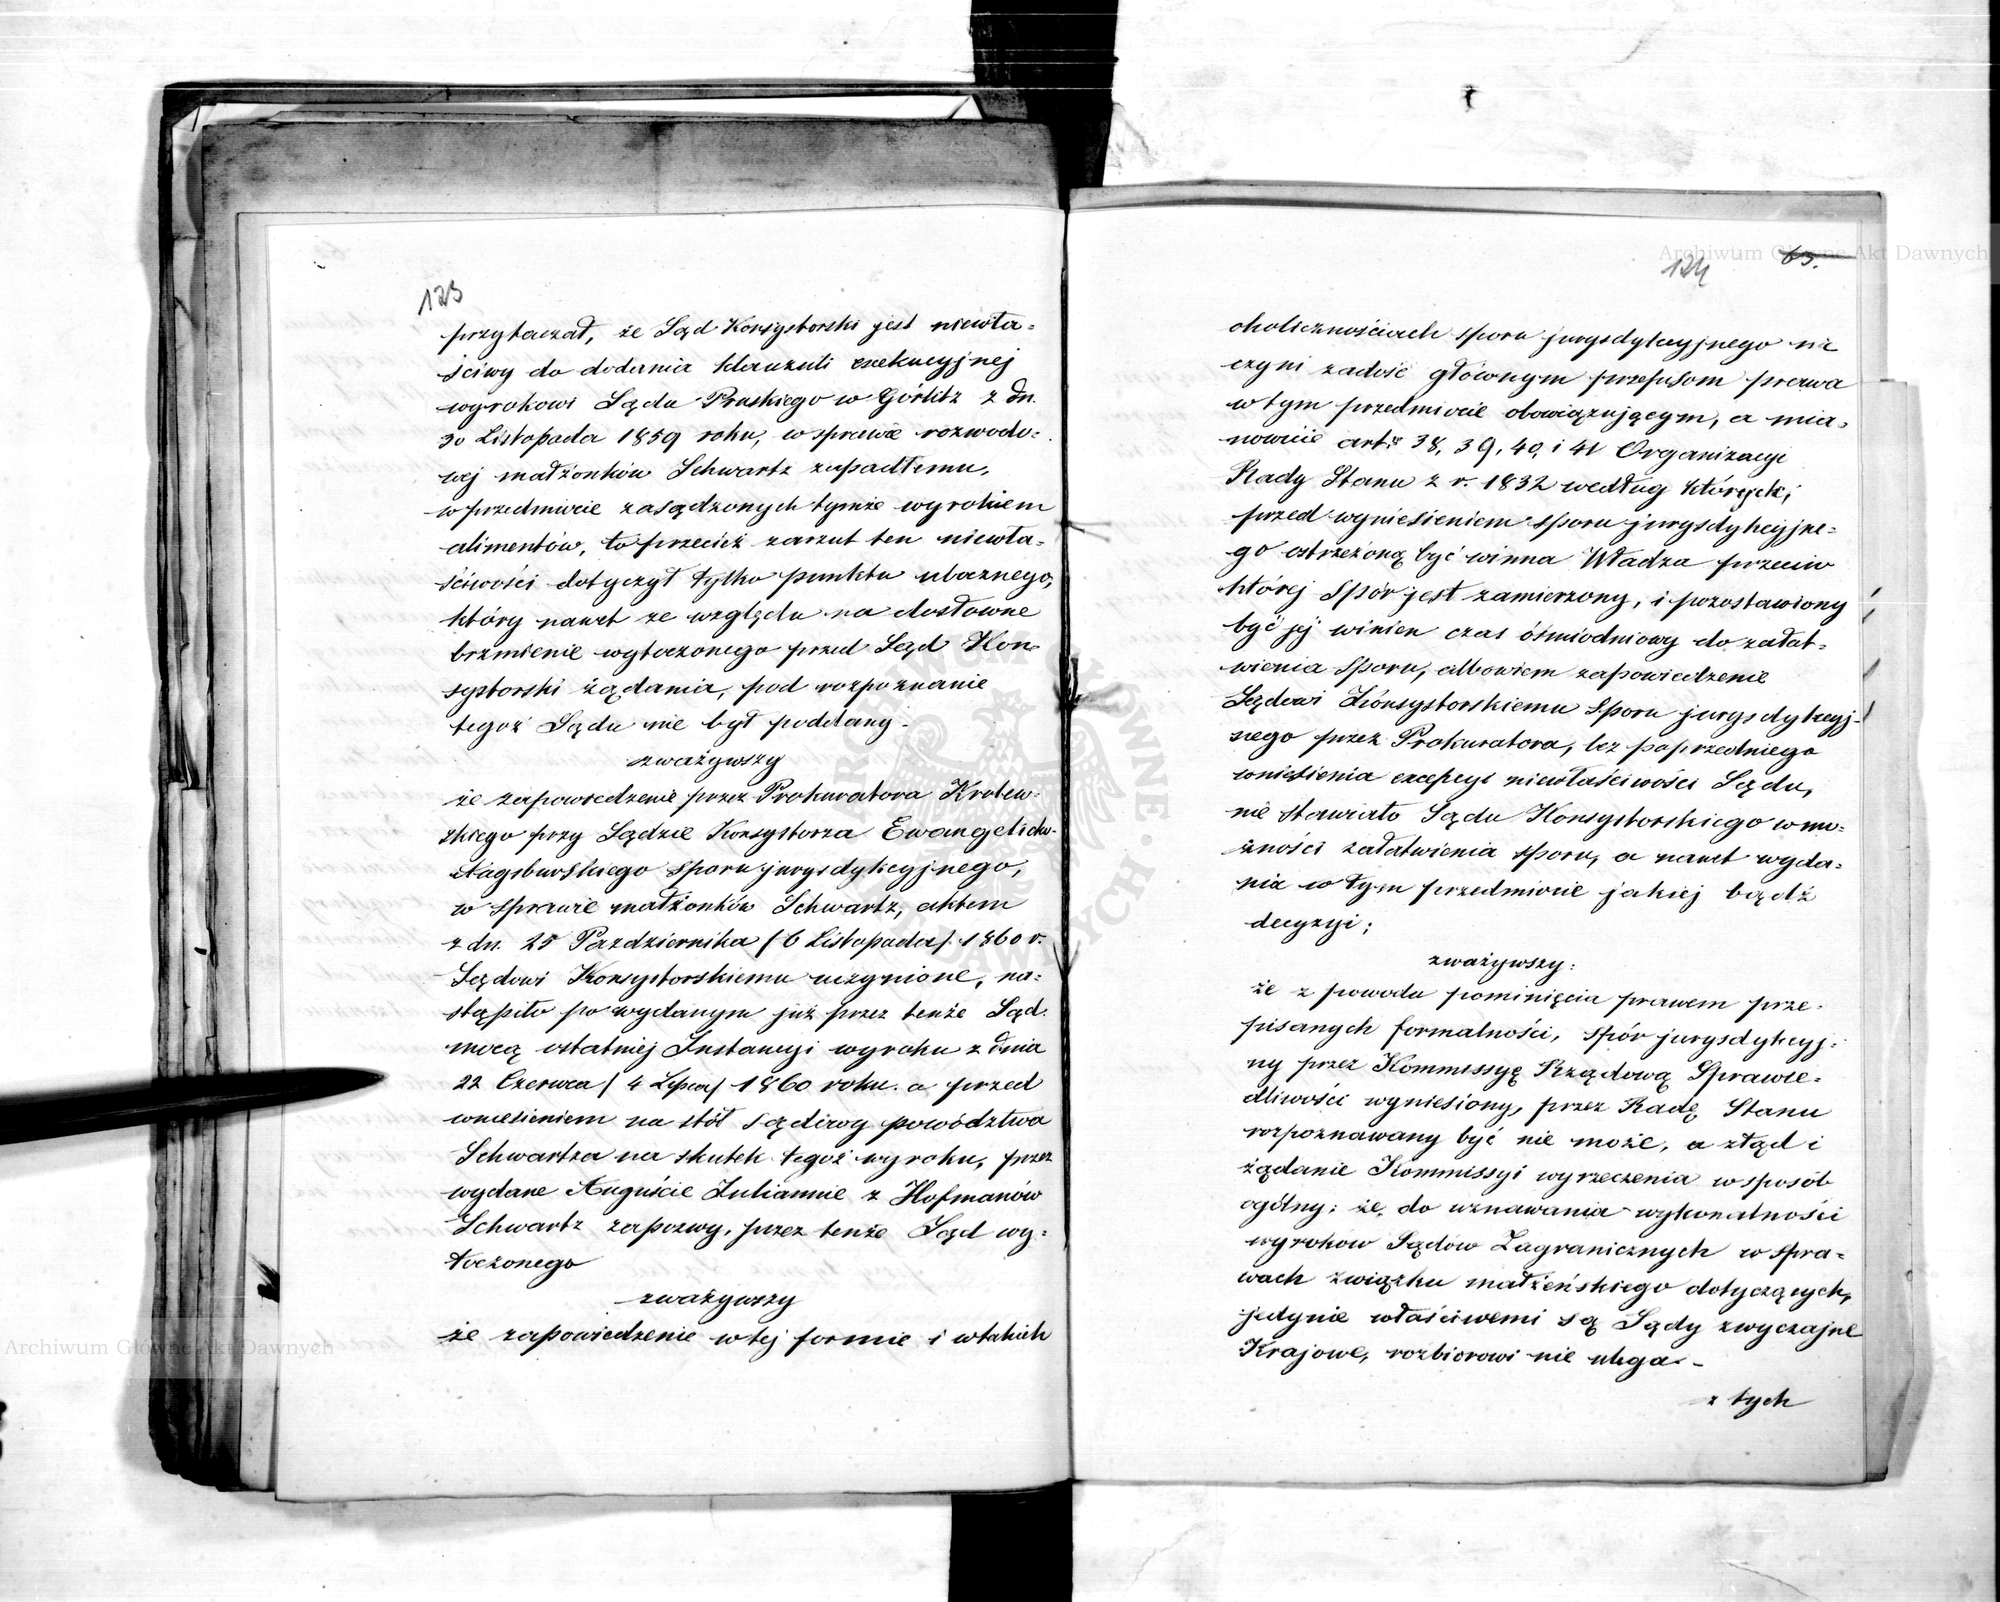 123
przytaczał, że Sąd Konsystorski jest niewła-
ściwy do dodania klauzuli exekucyjnej
wyrokowi Sądu Pruskiego w Görlitz z dn.
30 Listopada 1859 roku, w sprawie rozwodo-
wej małżonków Schwartz zapadłemu,
w przedmiocie zasądzonych tymże wyrokiem
alimentów, to przecież zarzut ten niewła-
ściwości dotyczył tylko punktu ubocznego,
który nawet ze względu na dosłowne
brzmienie wytoczonego przed Sąd Kon-
systorski żądania, pod rozpoznanie
tegoż Sądu nie był poddany.
zważywszy
że zapowiedzenie przez Prokuratora Królew-
skiego przy Sądzie Konsystorza Ewangelicko-
Augsburskiego sporu jurysdykcyjnego,
w sprawie małżonków Schwartz, aktem
z dn. 25 Października (6 Listopada) 1860 r.
Sądowi Konsystorskiemu uczynione, na-
stąpiło po wydanym już przez tenże Sąd
mocą ostatniej Instancyi wyroku z dnia
22 Czerwca (4 Lipca) 1860 roku. a przed
wniesieniem na stół sądowy powództwa
Schwartza na skutek tegoż wyroku, przez
wydane Auguście Juliannie z Hofmanów
Schwartz zapozwy, przez tenże Sąd wy-
toczonego
zważywszy
że zapowiedzenie w tej formie i w takich
124 63.
okolicznościach sporu jurysdykcyjnego nie
czyni zadość głównym przepisom prawa
w tym przedmiocie obowiązującym, a mia-
nowicie art. 38, 39, 40, i 41 Organizacyi
Rady Stanu z r. 1832 według których,
przed wyniesieniem sporu jurysdykcyjne-
go ostrzeżoną być winna Władza przeciw
której spór jest zamierzony, i pozostawiony
być jej winien czas ośmiodniowy do załat-
wienia sporu, albowiem zapowiedzenie
Sądowi Konsystorskiemu sporu jurysdykcyj-
nego przez Prokuratora, bez poprzedniego
wniesienia excepcyi niewłaściwości Sądu,
nie stawiało Sądu Konsystorskiego w mo-
żności załatwienia sporu, a nawet wyda-
nia w tym przedmiocie jakiej bądź
decyzyi;
zważywszy:
że z powodu pominięcia prawem prze-
pisanych formalności, spór jurysdykcyj-
ny przez Kommissyę Rządową Sprawie-
dliwości wyniesiony, przez Radę Stanu
rozpoznawany być nie może, a ztąd i
żądanie Kommissyi wyrzeczenia w sposób
ogólny: że do uznawania wykonalności
wyroków Sądów Zagranicznych w spra-
wach związku małżeńskiego dotyczących,
jedynie właściwemi są Sądy zwyczajne
Krajowe, rozbiorowi nie ulega.-
z tych
Archiwum Główne Akt Dawnych
Archiwum Główne Akt Dawnych